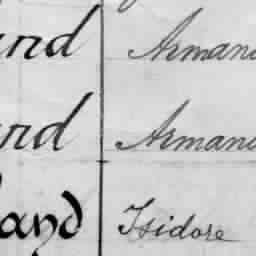 ard Arman
ard Arman
land Isidore